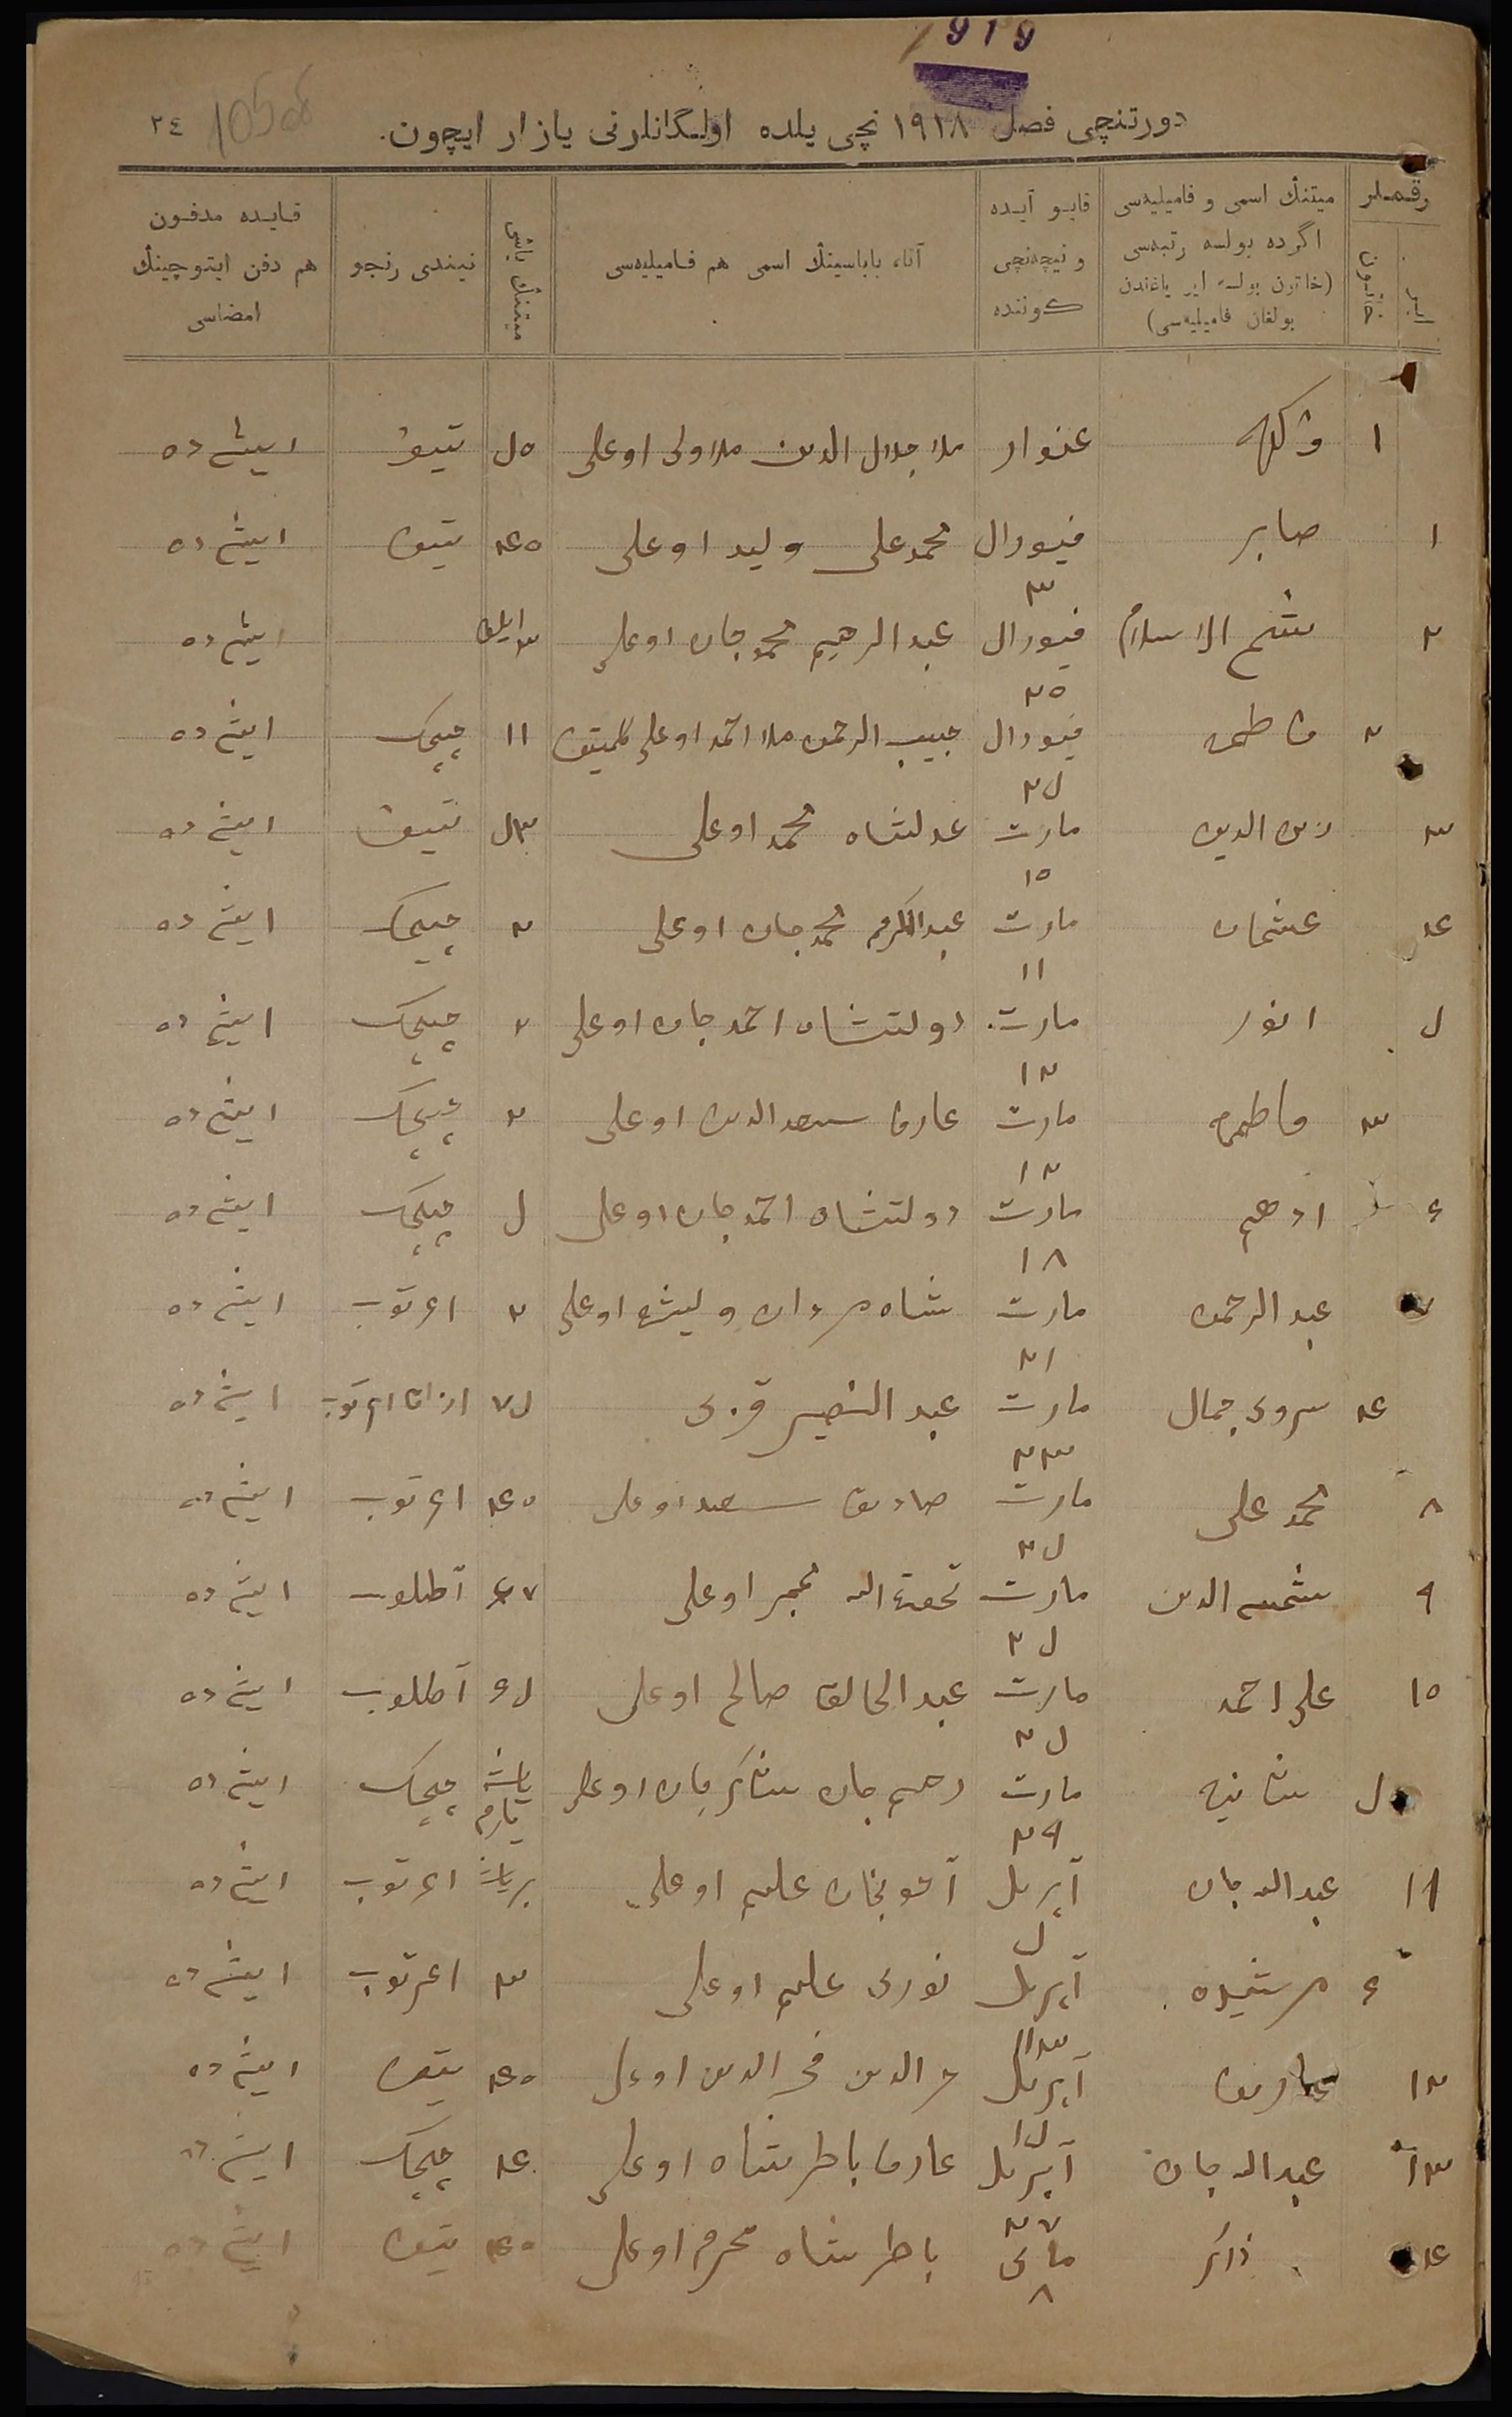 1919
دورتنچی فصل ١٩١٨ نچی یلده اولگانلرنی یازار ایچون.
٢٤
رقملر
ایر
خاتون
میتنڭ اسمی و فامیلیه‌سی اگرده بولسه رتبه‌سی (خاتون بولسه ایر یاغندن بولغان فامیلیه‌سی)
قایو آیده و نیچه‌نچی كوننده
آتا، باباسینڭ اسمی هم فامیلیه‌سی
میتنڭ یاشی
نیندی رنجو
قایده مدفون هم دفن ایتوچینڭ امضاسی
١ عنوار ملا جلال الدین ملا ولی اوغلی ٥٥ تیف ایشده
١ صابر فیورال ٣ محمد علی ولید اوغلی ٤٥ تیف ایشده
٢ شیخ الاسلام فیورال ٢٥ عبد الرحیم محمد جان اوغلی ٣ ایلق ایشده
٢ فاطمه فیورال ٢٥ حبیب الرحمن ملا احمد اوغلی ١١ چیچك ایشده
٣ زین الدین مارت ١٥ عدلشاه محمد اوغلی تیف ایشده
٤ عثمان مارت ١١ عبد الكریم محمد جان اوغلی ٢ چیچك ایشده
٥ انور مارت ١٢ دولتشاه احمد جان اوغلی ٢ چیچك ایشده
٣ فاطمه مارت ١٢ عارف سعد الدین اوغلی ٢ چیچك ایشده
٦ ادهم مارت ١٨ دولتشاه احمد جان اوغلی ٥ چیچك ایشده
٧ عبد الرحمن مارت ٢١ شاه مردان ولیشه اوغلی ٢ اغرتوب ایشده
٤ سروی جمال مارت ٢٣ عبد النصیر قزی ٧٥ اغرتوب ایشده
٨ محمد علی مارت ٢٥ صادق سعد اوغلی ٤٥ اغرتوب ایشده
٩ شمس الدین مارت ٢٥ تحفة الله اوغلی آطلوب ایشده
١٠ علی احمد مارت ٢٥ عبد الخالق صالح اوغلی ٦٥ آطلوب ایشده
٥ مارت ٢٩ رحیم جان شاكر جان اوغلی یاش یارم چیچك ایشده
١١ عبد الله جان آپریل ٥ علیم اوغلی بر یاش اغرتوب ایشده
٦ مرشیده آپریل نوری علیم اوغلی ٣ اغرتوب ایشده
١٢ آپریل فخر الدین اوغلی ٤٥ تیف ایشده
١٣ عبد الله جان آپریل ٢٧ عارف باطرشاه اوغلی ٤ چیچك ایشده
١٤ ذاكر مای ٨ باطرشاه محرم اوغلی ٤٥ تیف ایشده